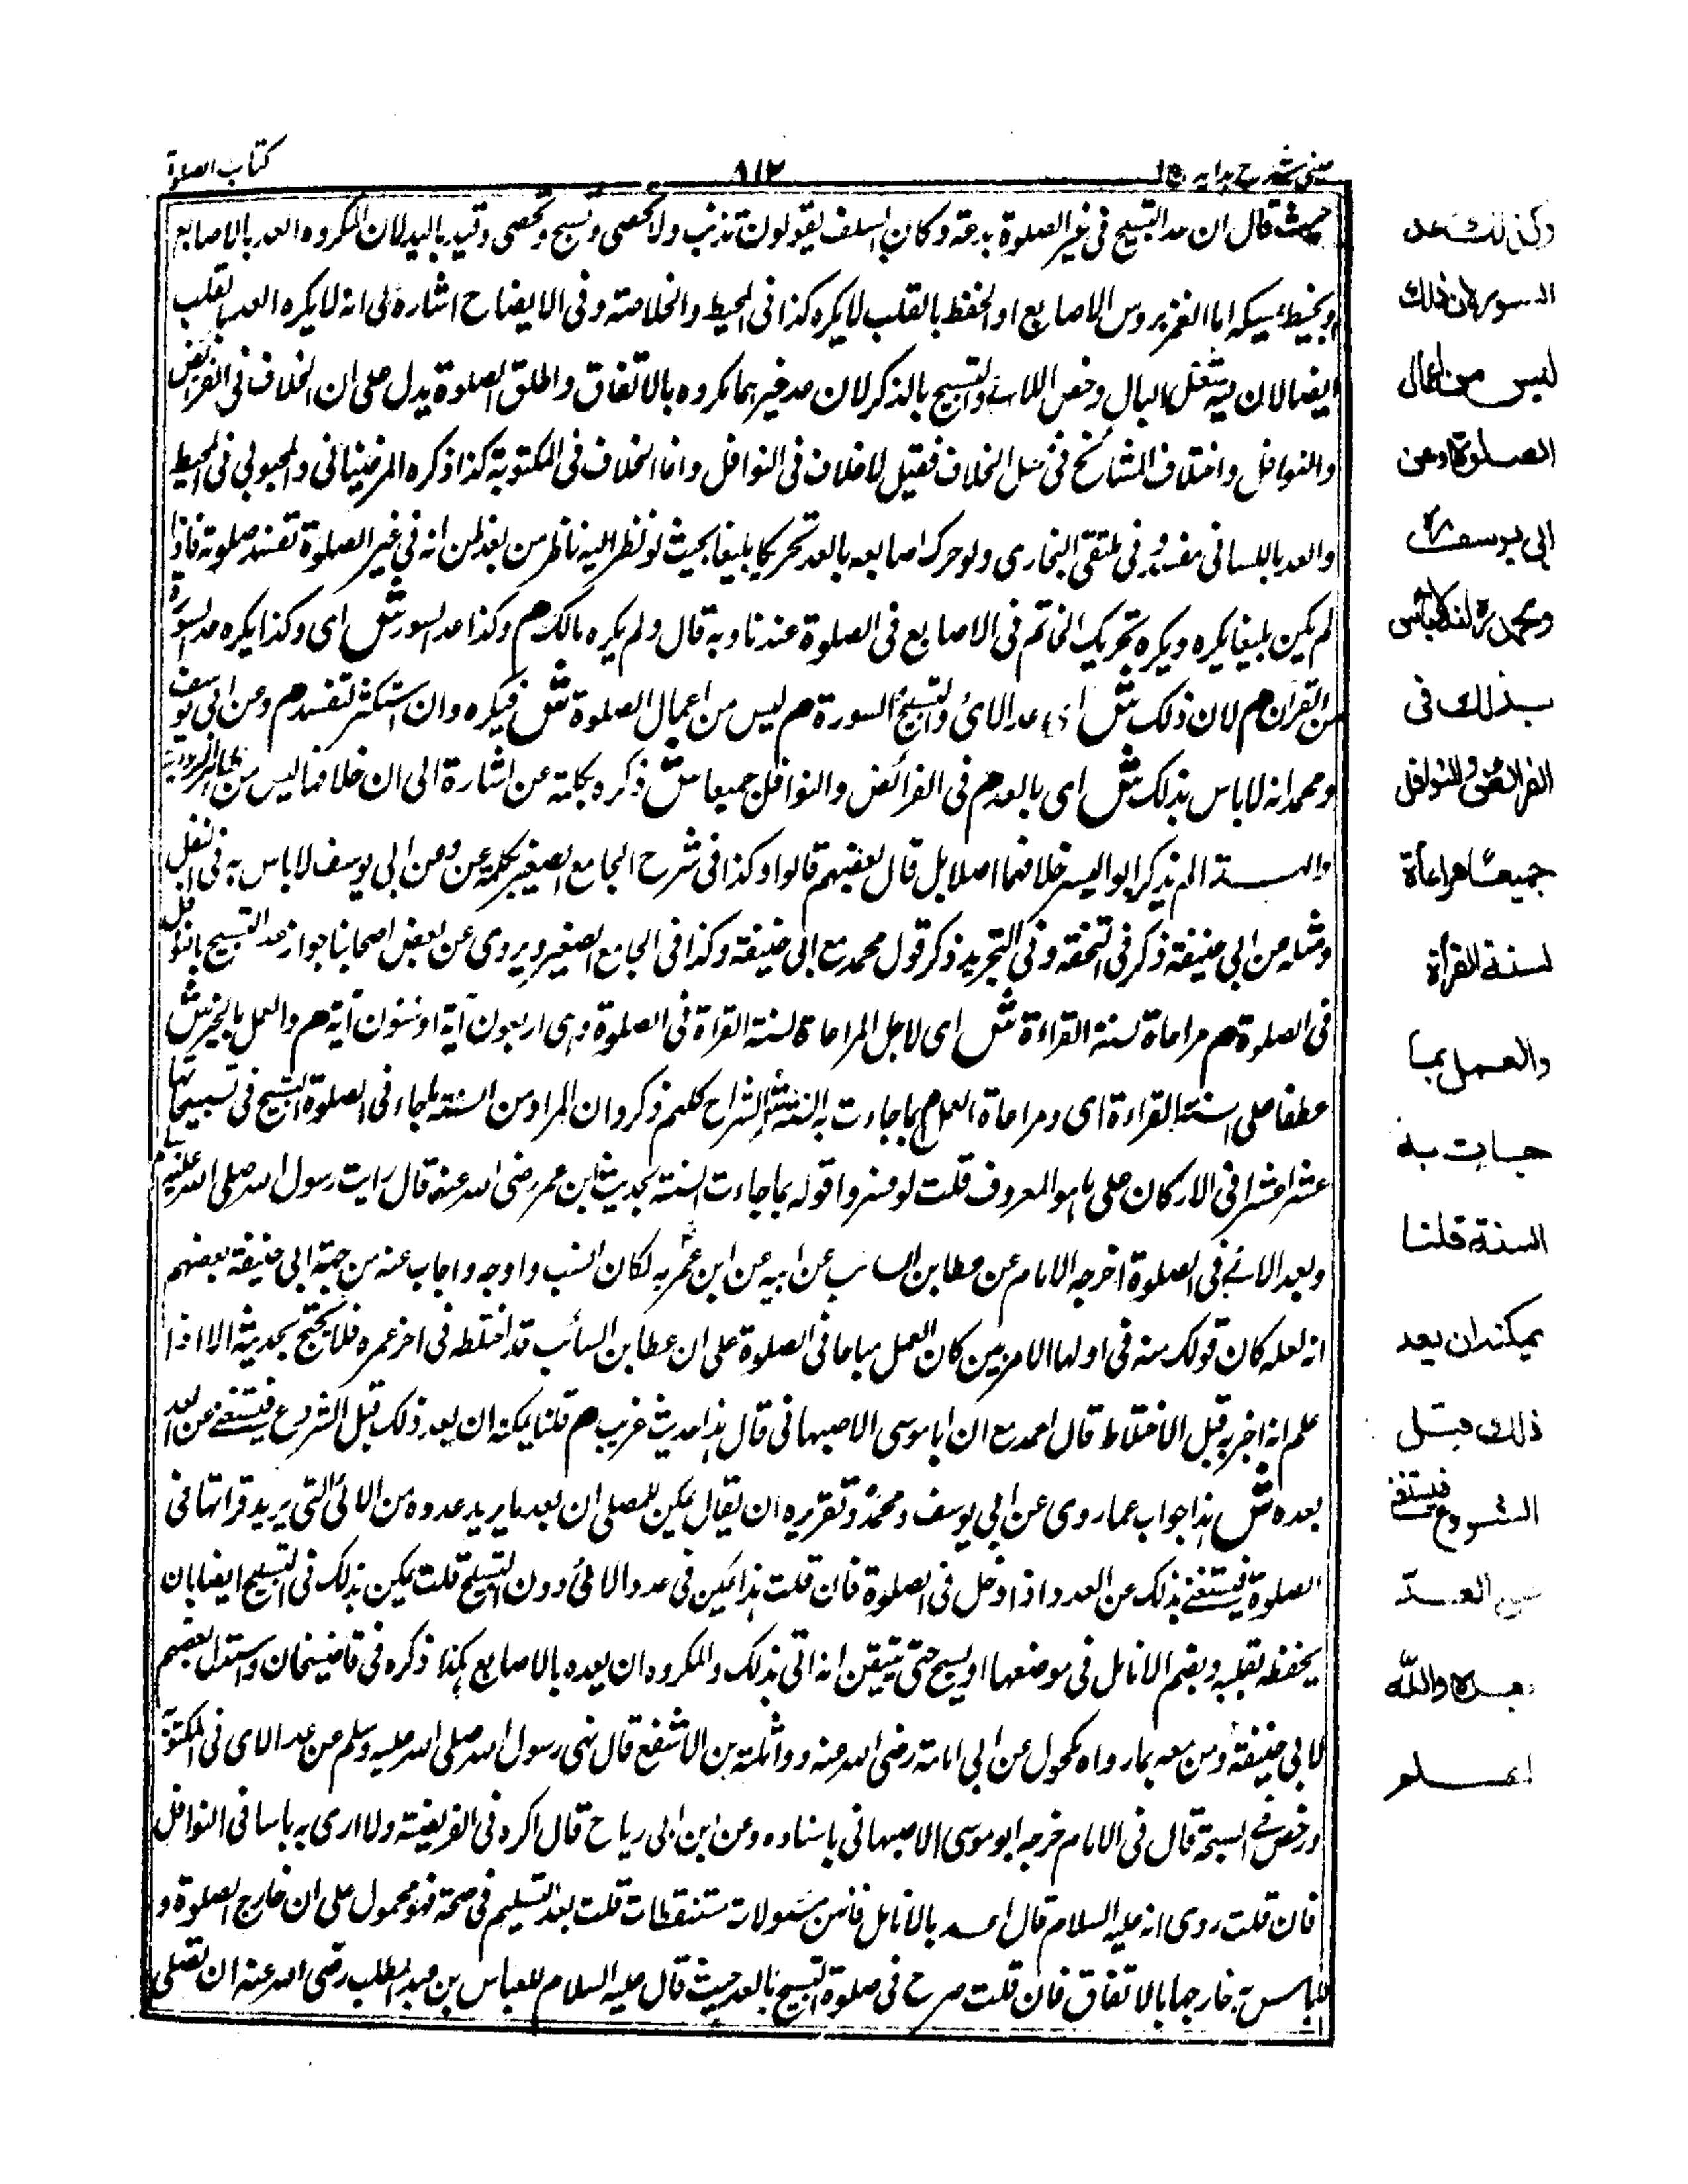 عینی شرح هدایه ج ا
۸۱۲
کتاب الصلوة
حيث قال ان عد التسبيح فى غير الصلوة بدعة وكان السلف يقولون تذنب ولا تحصى وتسبح وتحصى وقيد باليد لان المكروه العد بالاصابع
او بخيط يمسكه اما الغمز بروس الاصابع او الحفظ بالقلب لا يكره كذا فى المحيط والخلاصة وفى الايضاح اشارة الى انه لا يكره العد بالقلب
ايضا لان يشغل البال وخص الاى والتسبيح بالذكر لان عد غيرهما مكروه بالاتفاق واطلق الصلوة يدل على ان الخلاف فى الفرائض
والنوافل واختلاف المشائخ فى محل الخلاف فقيل لا خلاف فى النوافل وانما الخلاف فى المكتوبة كذا ذكره المرغينانى والمحبوبى فى المحيط
والعد باللسانى مفسد وفى ملتقى البخارى ولو حرك اصابعه بالعد تحريكا بليغا بحيث لو نظر اليه ناظر من بعد ظن انه فى غير الصلوة تفسد صلوته فاذا
لم يكن بليغا يكره ويكره تحريك الخاتم فى الاصابع فى الصلوة عندنا وبه قال ولم يكره مالك م وكذا عد السور ش اى وكذا يكره عد السورة
من القرآن م لان ذلك ش اى عد الاى والتسبيح والسورة م ليس من اعمال الصلوة ش فيكره وان استكثر تفسد م وعن ابى يوسف
ومحمد انه لا باس بذلك ش اى بالعد م فى الفرائض والنوافل جميعا ش ذكره بكلمة عن اشارة الى ان خلافهما ليس من ظاهر الرواية
والهذا لم يذكر ابو اليسر خلافهما اصلا بل قال بعضهم قالوا وكذا فى شرح الجامع الصغير بكلمة عن وعن ابى يوسف لا باس به فى النفل
ومثله عن ابى حنيفة ذكر فى التحفة وفى التجريد ذكر قول محمد مع ابى حنيفة وكذا فى الجامع الصغير ويروى عن بعض اصحابنا جواز عد التسبيح بالنوافل
فى الصلوة م مراعاة لسنة القراءة ش اى لاجل المراعاة لسنة القراة فى الصلوة وهى اربعون آية او ستون آية م والعمل بالخبر ش
عطفا على سنة القراءة اى ومراعاة العمل م بما جاءت به السنة ش الشراح كلهم ذكروا ان المراد من السنة ما جاء فى الصلوة التسبيح فى تسبيحاتها
عشرا عشرا فى الاركان على ما هو المعروف قلت لو فسروا قوله بما جاءت السنة بحديث ابن عمر رضى الله عنه قال رايت رسول الله صلى الله عليه وسلم
وبعد الائ فى الصلوة اخرجه الامام عن عطا بن السائب عن ابيه عن ابن عمر به لكان انسب واوجه واجاب عنه من جهة ابى حنيفة بعضهم
انه لعله كان قولك منه فى اولها الامر حين كان العمل مباحا فى الصلوة على ان عطا بن السائب قد اختلط فى اخر عمره فلا يحتج بحديثه الا اذا
علم انه اخر به قبل الاختلاط قال احمد مع ان ابا موسى الاصبهانى قال هذا حديث غريب م قلنا يمكنه ان يعد ذلك قبل الشروع فيستغنى عن العد
بعده ش هذا جواب عما روى عن ابى يوسف ومحمد وتقريره ان يقال يمكن للمصلى ان يعد ما يريد عدده من الائ التى يريد قراتها فى
الصلوة فيستغنى بذلك عن العدد اذا دخل فى الصلوة فان قلت هذا يمكن فى عدد الائ دون التسبيح قلت يمكن بذلك فى التسبيح ايضا بان
يحفظ بقلبه ويضم الانامل فى موضعها او يسبح حتى يتيقن انه اتى بذلك والمكروه ان يعده بالاصابع هكذا ذكره فى قاضيخان واستدل بعضهم
لابى حنيفة ومن معه بما رواه مكحول عن ابى امامة رضى الله عنه وواثلة بن الاسقع قال نهى رسول الله صلى الله عليه وسلم عن عد الاى فى المكتوبة
ورخص فى السبحة قال فى الامام خرجه ابو موسى الاصبهانى باسناده وعن ابن ابى رباح قال اكره فى الفريضة ولا ارى به باسا فى النوافل
فان قلت روى انه عليه السلام قال اعده بالانامل فانهن مسئولات مستنطقات قلت بعد التسليم فى صحته فهو محمول على ان خارج الصلوة و
لا باس به خارجها بالاتفاق فان قلت صرح فى صلوة التسبيح بالعد حيث قال عليه السلام للعباس بن عبد المطلب رضى الله عنه ان تصلى
وكذلك عد
السور لان ذلك
ليس من اعمال
الصلوة وعن
ابى يوسف
ومحمد انه لا باس
بذلك فى
الفرائض والنوافل
جميعا مراعاة
لسنة القراة
والعمل بما
جاءت به
السنة قلنا
يمكنه ان يعد
ذلك قبل
الشروع فيستغنى
عن العد
بعده والله
اعلم